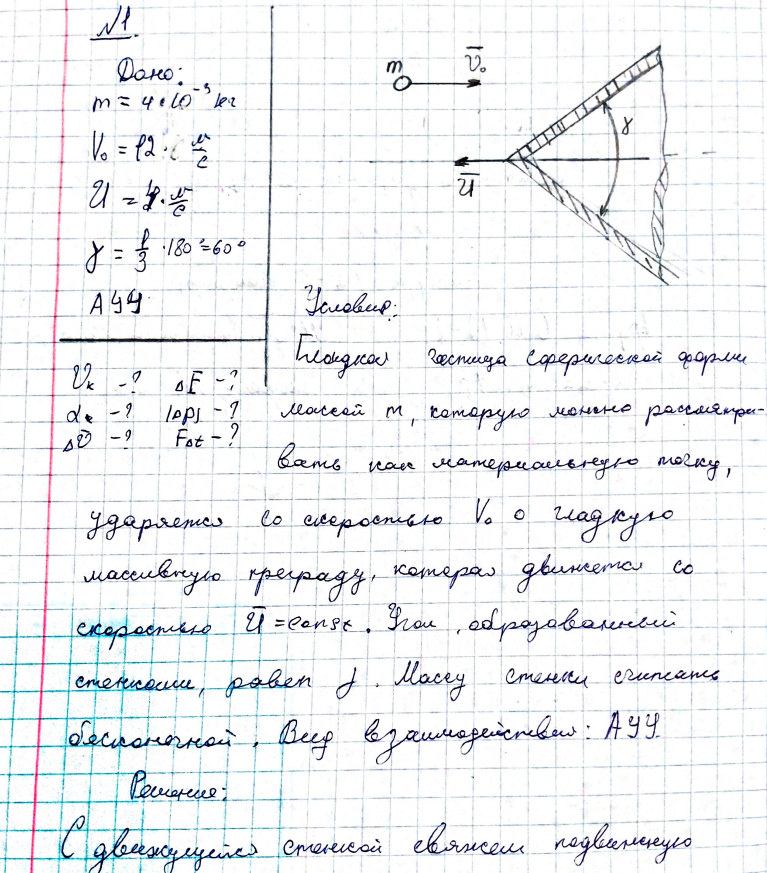 №1.
Дано:
m = 4·10⁻³ кг
V₀ = 12 · м/с
U = 4 · м/с
γ = 1/3 · 180° = 60°
АУУ
m
V̄₀
Ū
γ
Условия:
Гладкая частица сферической формы
Vₖ - ? ΔE - ?
αₖ - ? |Δp| - ?
Δῡ - ? F̄Δt - ?
массой m, которую можно рассматри-
вать как материальную точку,
ударяется со скоростью V₀ о гладкую
массивную преграду, которая движется со
скоростью Ū = const. Угол, образованный
стенками, равен γ. Массу стенки считать
бесконечной. Вид взаимодействия: АУУ
Решение:
С движущейся стенкой свяжем подвижную